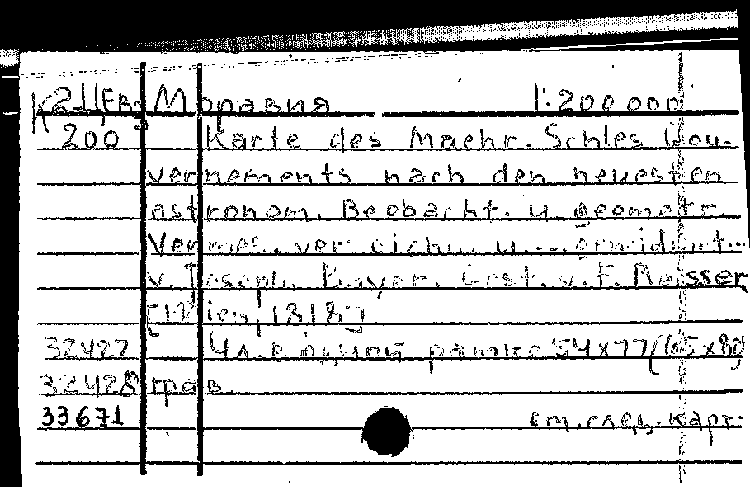 К 2-11/Ев3 Моравия 1:200 000
200 Karte des Maehr. Schles Gou-
vernements nach den neuesten
astronom. Beobacht. u. geometr.
Vermes. u.
v. Joseph Bayer. Gest. v. F. Reisser
[Wien, 1818]
32427 4 л. в одной рамке 54x77 (65x89)
32428 грав.
33671 см. след. карт.